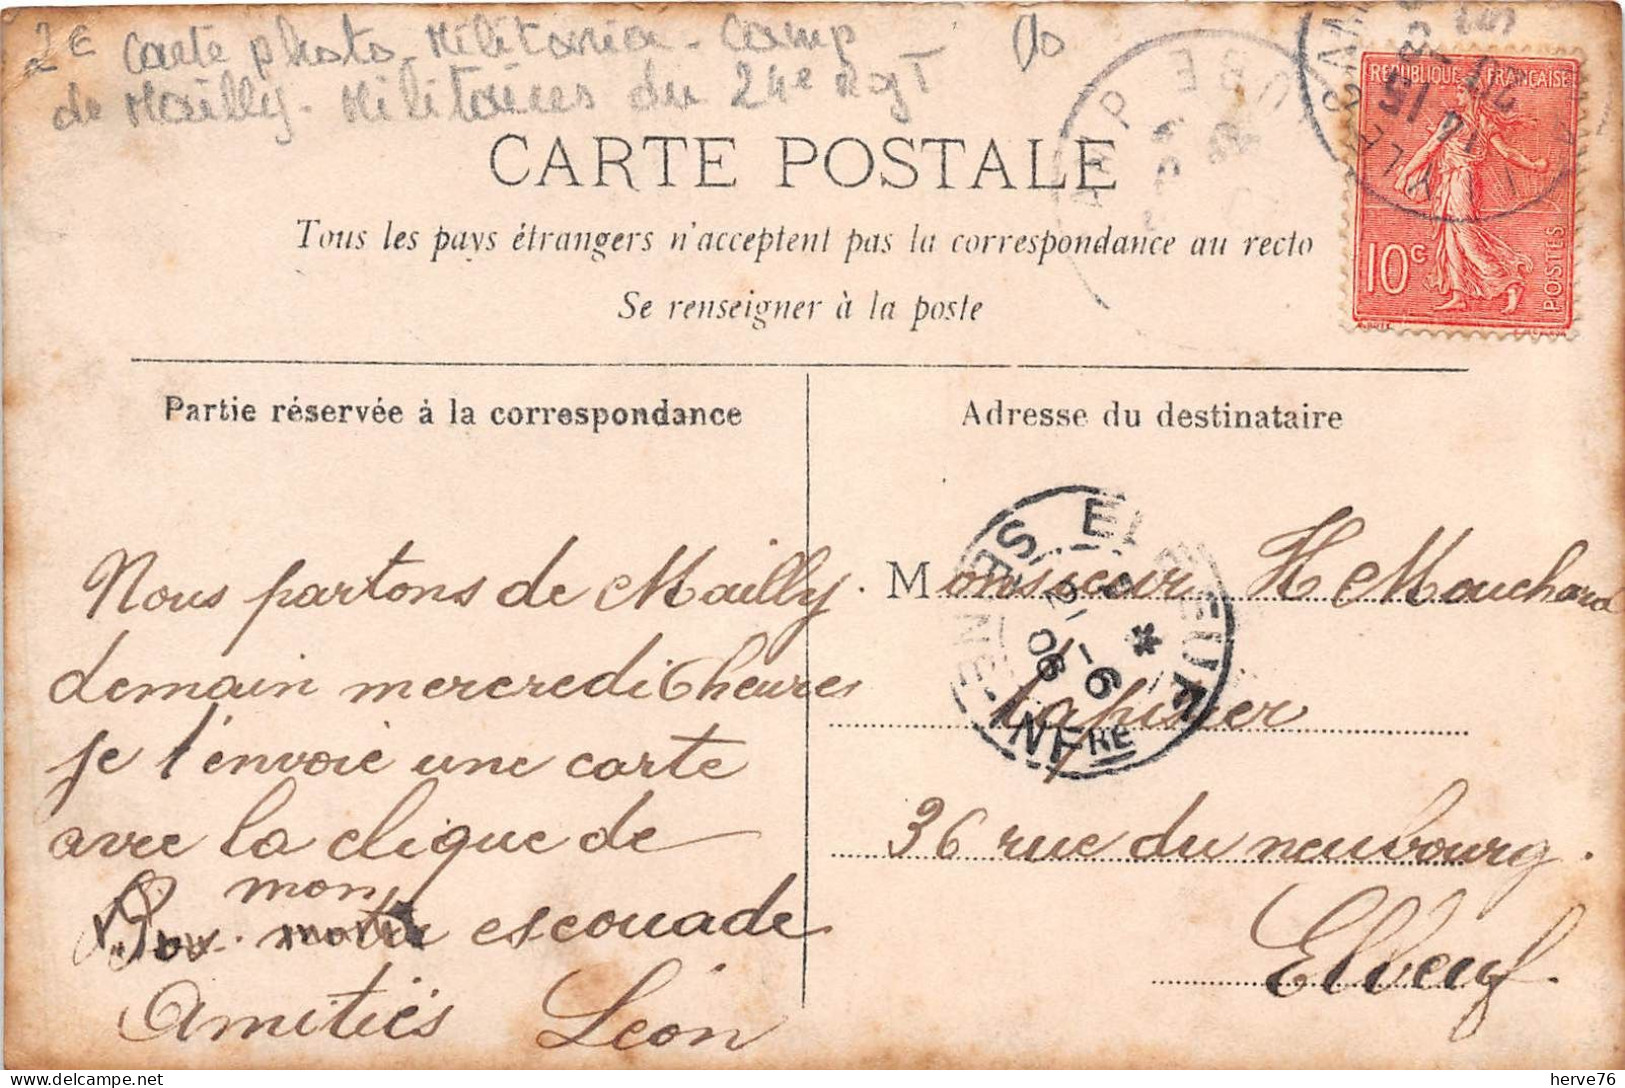 2€ Carte photo - Militaria - Camp
de Mailly - Militaires du 24e Rgt
CARTE POSTALE
Tous les pays étrangers n'acceptent pas la correspondance au recto
Se renseigner à la poste
REPUBLIQUE FRANÇAISE
10c
POSTES
Partie réservée à la correspondance
Adresse du destinataire
Nous partons de Mailly.
demain mercredi 6 heures
je t'envoie une carte
avec la clique de
mon
escouade
Amitiés Léon
Monsieur H Mouchard
tapissier
36 rue du neubourg.
Elbeuf.
ELBEUF
SEINE-INFRE
6
06
CAMP
AUBE
herve76